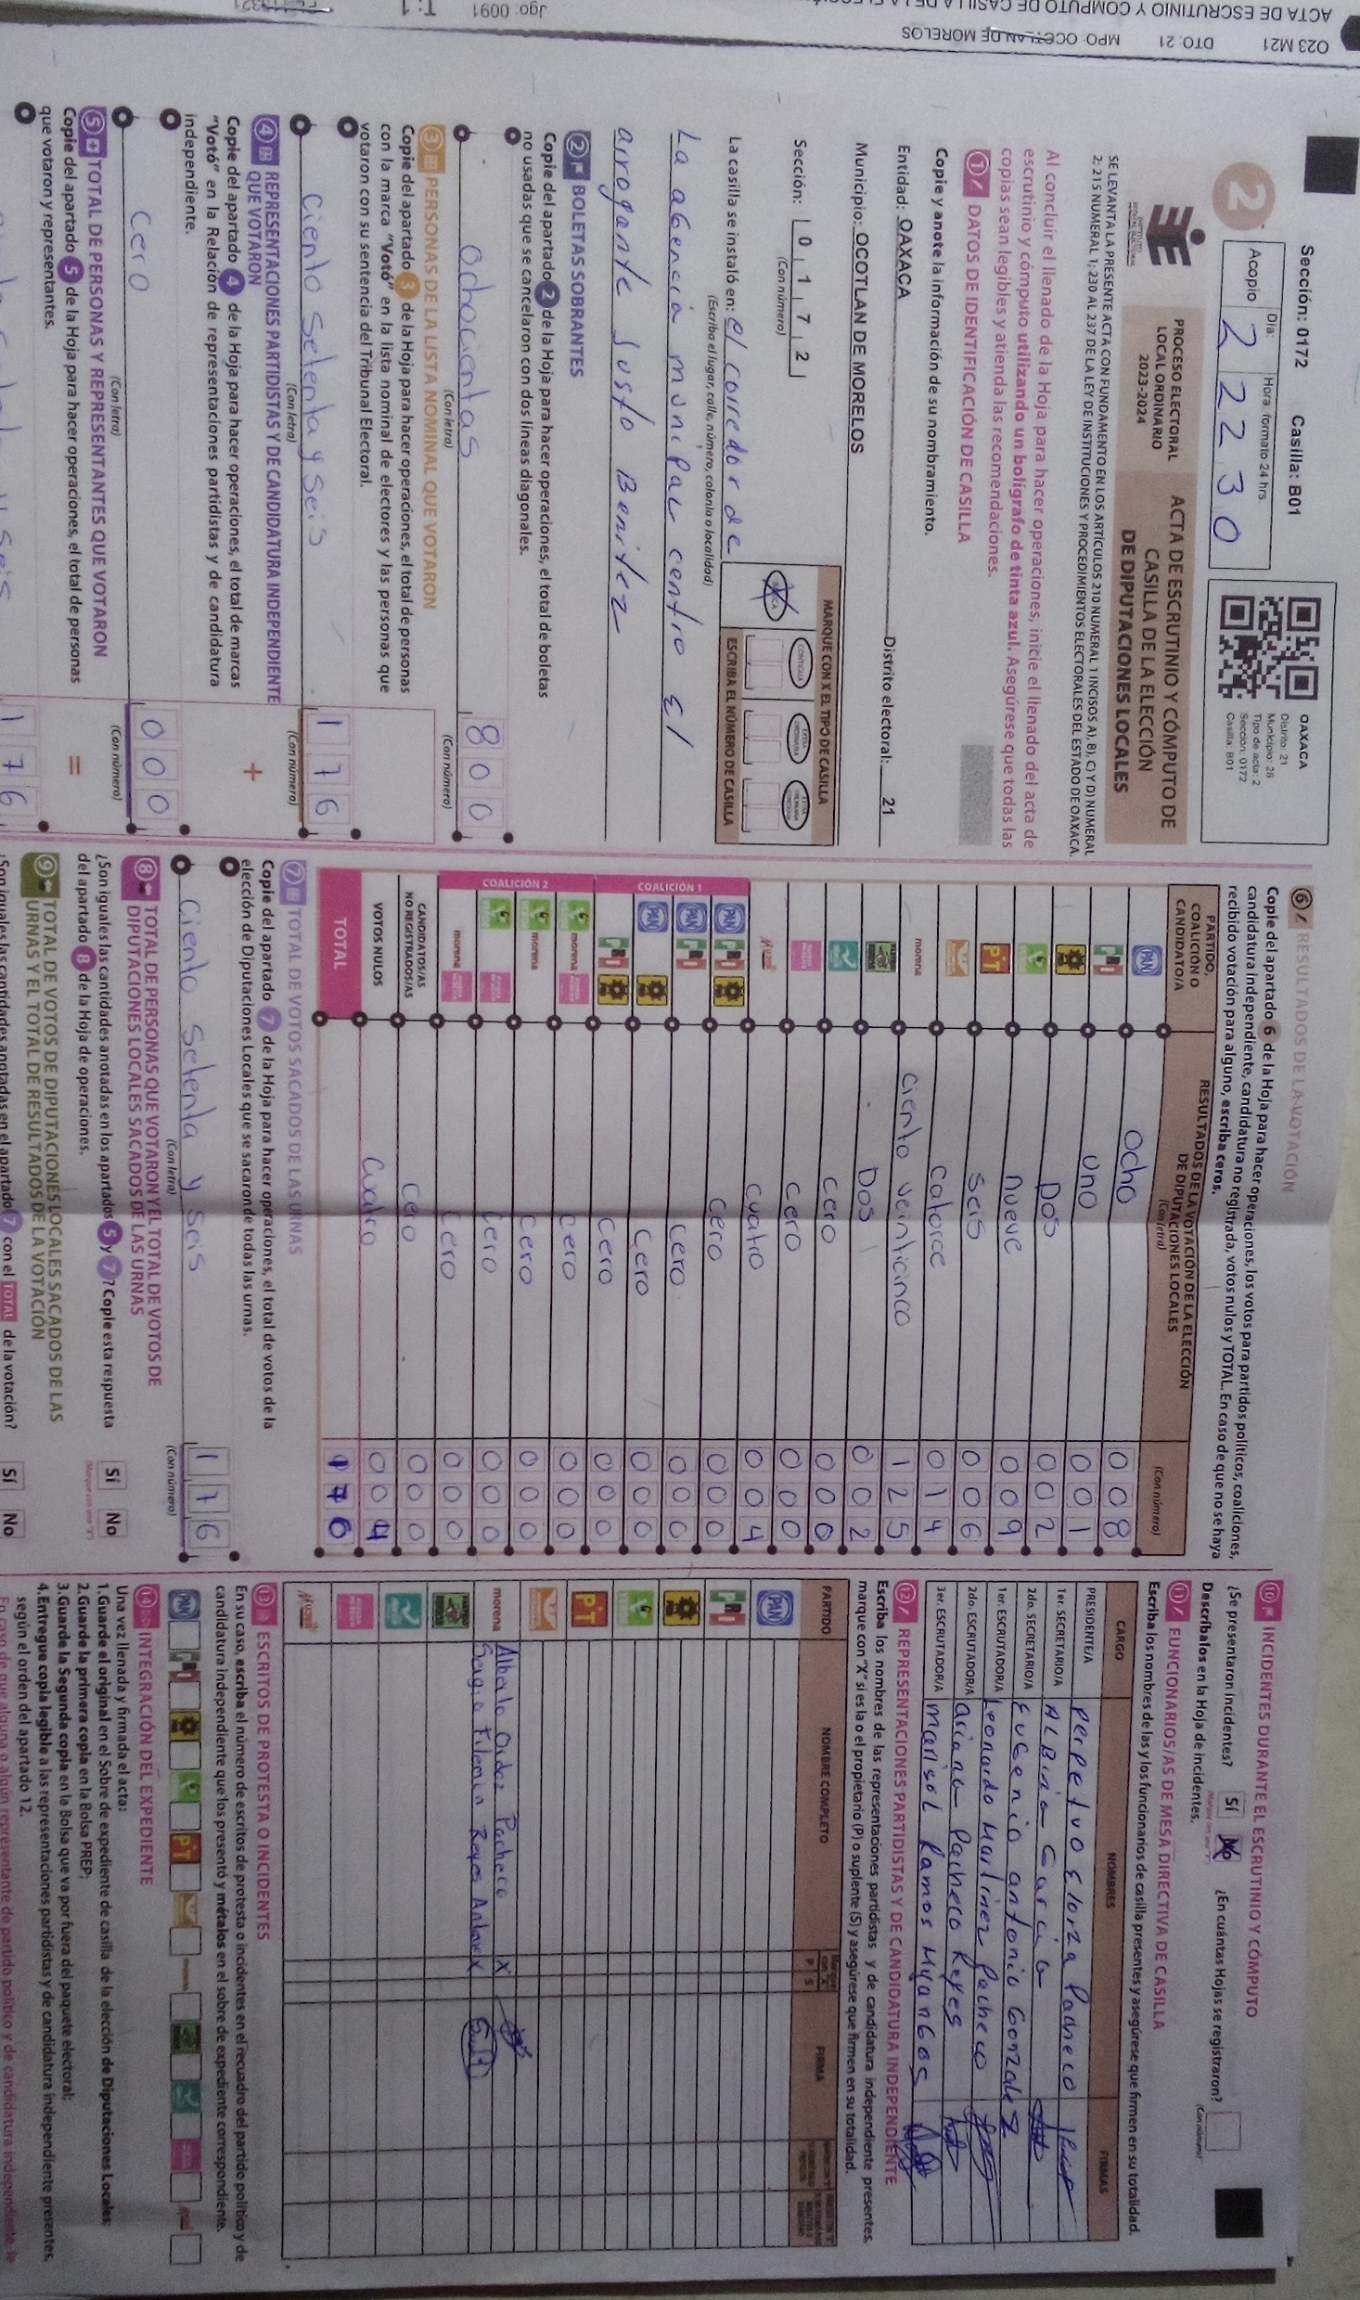 023 M21 DTO: 21 MPO: OCOTLAN DE MORELOS
Sección: 0172 Casilla: B01
2
Acopio
Día:
Hora: formato 24 hrs.
2 22 30
OAXACA
Distrito: 21
Municipio: 28
Tipo de acta: 2
Sección: 0172
Casilla: B01
PROCESO ELECTORAL
LOCAL ORDINARIO
2023-2024
ACTA DE ESCRUTINIO Y CÓMPUTO DE
CASILLA DE LA ELECCIÓN
DE DIPUTACIONES LOCALES
SE LEVANTA LA PRESENTE ACTA CON FUNDAMENTO EN LOS ARTÍCULOS 210 NUMERAL 1 INCISOS A), B), C) Y D) NUMERAL
2; 215 NUMERAL 1; 230 AL 237 DE LA LEY DE INSTITUCIONES Y PROCEDIMIENTOS ELECTORALES DEL ESTADO DE OAXACA.
Al concluir el llenado de la Hoja para hacer operaciones, inicie el llenado del acta de
escrutinio y cómputo utilizando un bolígrafo de tinta azul. Asegúrese que todas las
copias sean legibles y atienda las recomendaciones.
1 DATOS DE IDENTIFICACIÓN DE CASILLA
Copie y anote la información de su nombramiento.
Entidad: OAXACA Distrito electoral: 21
Municipio: OCOTLAN DE MORELOS
Sección: 0 1 7 2
(Con número)
MARQUE CON X EL TIPO DE CASILLA
ESCRIBA EL NÚMERO DE CASILLA
La casilla se instaló en: el corredor de
(Escriba el lugar, calle, número, colonia o localidad)
La agencia municipal centro El
arrogante Justo Benitez
2 BOLETAS SOBRANTES
Copie del apartado 2 de la Hoja para hacer operaciones, el total de boletas
no usadas que se cancelaron con dos líneas diagonales.
Ochocientas 800
(Con letra) (Con número)
3 PERSONAS DE LA LISTA NOMINAL QUE VOTARON
Copie del apartado 3 de la Hoja para hacer operaciones, el total de personas
con la marca "Votó" en la lista nominal de electores y las personas que
votaron con su sentencia del Tribunal Electoral.
Ciento Setenta y Seis 176
(Con letra) (Con número)
4 REPRESENTACIONES PARTIDISTAS Y DE CANDIDATURA INDEPENDIENTE
QUE VOTARON +
Copie del apartado 4 de la Hoja para hacer operaciones, el total de marcas
"Votó" en la Relación de representaciones partidistas y de candidatura
independiente.
Cero 000
(Con letra) (Con número)
5 TOTAL DE PERSONAS Y REPRESENTANTES QUE VOTARON
Copie del apartado 5 de la Hoja para hacer operaciones, el total de personas
que votaron y representantes. =
176
6 RESULTADOS DE LA VOTACIÓN
Copie del apartado 6 de la Hoja para hacer operaciones, los votos para partidos políticos, coaliciones,
candidatura independiente, candidatura no registrada, votos nulos y TOTAL. En caso de que no se haya
recibido votación para alguno, escriba ceros.
PARTIDO,
COALICIÓN O
CANDIDATO/A
RESULTADOS DE LA VOTACIÓN DE LA ELECCIÓN
DE DIPUTACIONES LOCALES
(Con letra) (Con número)
PAN Ocho 008
PRI Uno 001
Dos 002
Nueve 009
PT Seis 006
Catorce 014
morena Ciento veinticinco 125
Dos 002
Cero 000
Cero 000
Cuatro 004
COALICIÓN 1
PAN PRI Cero 000
PAN PRI Cero 000
PAN Cero 000
PRI Cero 000
COALICIÓN 2
morena Cero 000
morena Cero 000
Cero 000
morena Cero 000
CANDIDATOS/AS
NO REGISTRADOS/AS Cero 000
VOTOS NULOS Cuatro 004
TOTAL 176
7 TOTAL DE VOTOS SACADOS DE LAS URNAS
Copie del apartado 7 de la Hoja para hacer operaciones, el total de votos de la
elección de Diputaciones Locales que se sacaron de todas las urnas.
Ciento Setenta y Seis 176
(Con letra) (Con número)
8 TOTAL DE PERSONAS QUE VOTARON Y EL TOTAL DE VOTOS DE
DIPUTACIONES LOCALES SACADOS DE LAS URNAS
¿Son iguales las cantidades anotadas en los apartados 5 y 7? Copie esta respuesta
del apartado 8 de la Hoja de operaciones. Sí No
9 TOTAL DE VOTOS DE DIPUTACIONES LOCALES SACADOS DE LAS
URNAS Y EL TOTAL DE RESULTADOS DE LA VOTACIÓN
¿Son iguales las cantidades anotadas en el apartado 7 con el TOTAL de la votación? Sí No
10 INCIDENTES DURANTE EL ESCRUTINIO Y CÓMPUTO
¿Se presentaron incidentes? Sí No ¿En cuántas Hojas se registraron?
(Con número)
Descríbalos en la Hoja de incidentes.
11 FUNCIONARIOS/AS DE MESA DIRECTIVA DE CASILLA
Escriba los nombres de las y los funcionarios de casilla presentes y asegúrese que firmen en su totalidad.
CARGO NOMBRES FIRMAS
PRESIDENTE/A Perpetuo Elorza Pacheco
1er. SECRETARIO/A Albina Garcia
2do. SECRETARIO/A Eugenio antonio Gonzalez
1er. ESCRUTADOR/A Leonardo Martinez Pacheco
2do. ESCRUTADOR/A ariana Pacheco Reyes
3er. ESCRUTADOR/A Marisol Ramos
12 REPRESENTACIONES PARTIDISTAS Y DE CANDIDATURA INDEPENDIENTE
Escriba los nombres de las representaciones partidistas y de candidatura independiente presentes,
marque con "X" si es la o el propietario (P) o suplente (S) y asegúrese que firmen en su totalidad.
PARTIDO NOMBRE COMPLETO P S FIRMA
PAN
PRI
PT
morena Alberto Pacheco X
Sergio Filemon Reyes X
13 ESCRITOS DE PROTESTA O INCIDENTES
En su caso, escriba el número de escritos de protesta o incidentes en el recuadro del partido político y de
candidatura independiente que los presentó y métalos en el sobre de expediente correspondiente.
PAN PRI PT
14 INTEGRACIÓN DEL EXPEDIENTE
Una vez llenada y firmada el acta:
1.Guarde el original en el Sobre de expediente de casilla de la elección de Diputaciones Locales;
2.Guarde la primera copia en la Bolsa PREP;
3.Guarde la Segunda copia en la Bolsa que va por fuera del paquete electoral;
4.Entregue copia legible a las representaciones partidistas y de candidatura independiente presentes,
según el orden del apartado 12.
Jgo: 0091 T: 1